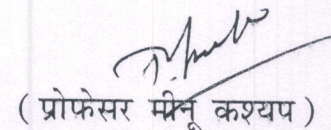 ( प्रोफेसर मीनू कश्यप )